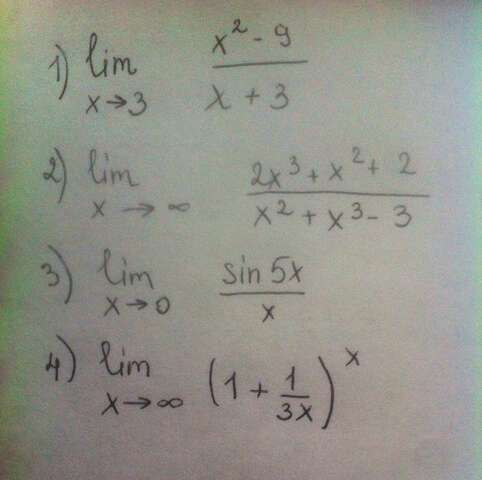 1) lim x→3 (x² - 9)/(x + 3)
2) lim x→∞ (2x³ + x² + 2)/(x² + x³ - 3)
3) lim x→0 (sin 5x)/x
4) lim x→∞ (1 + 1/(3x))^x